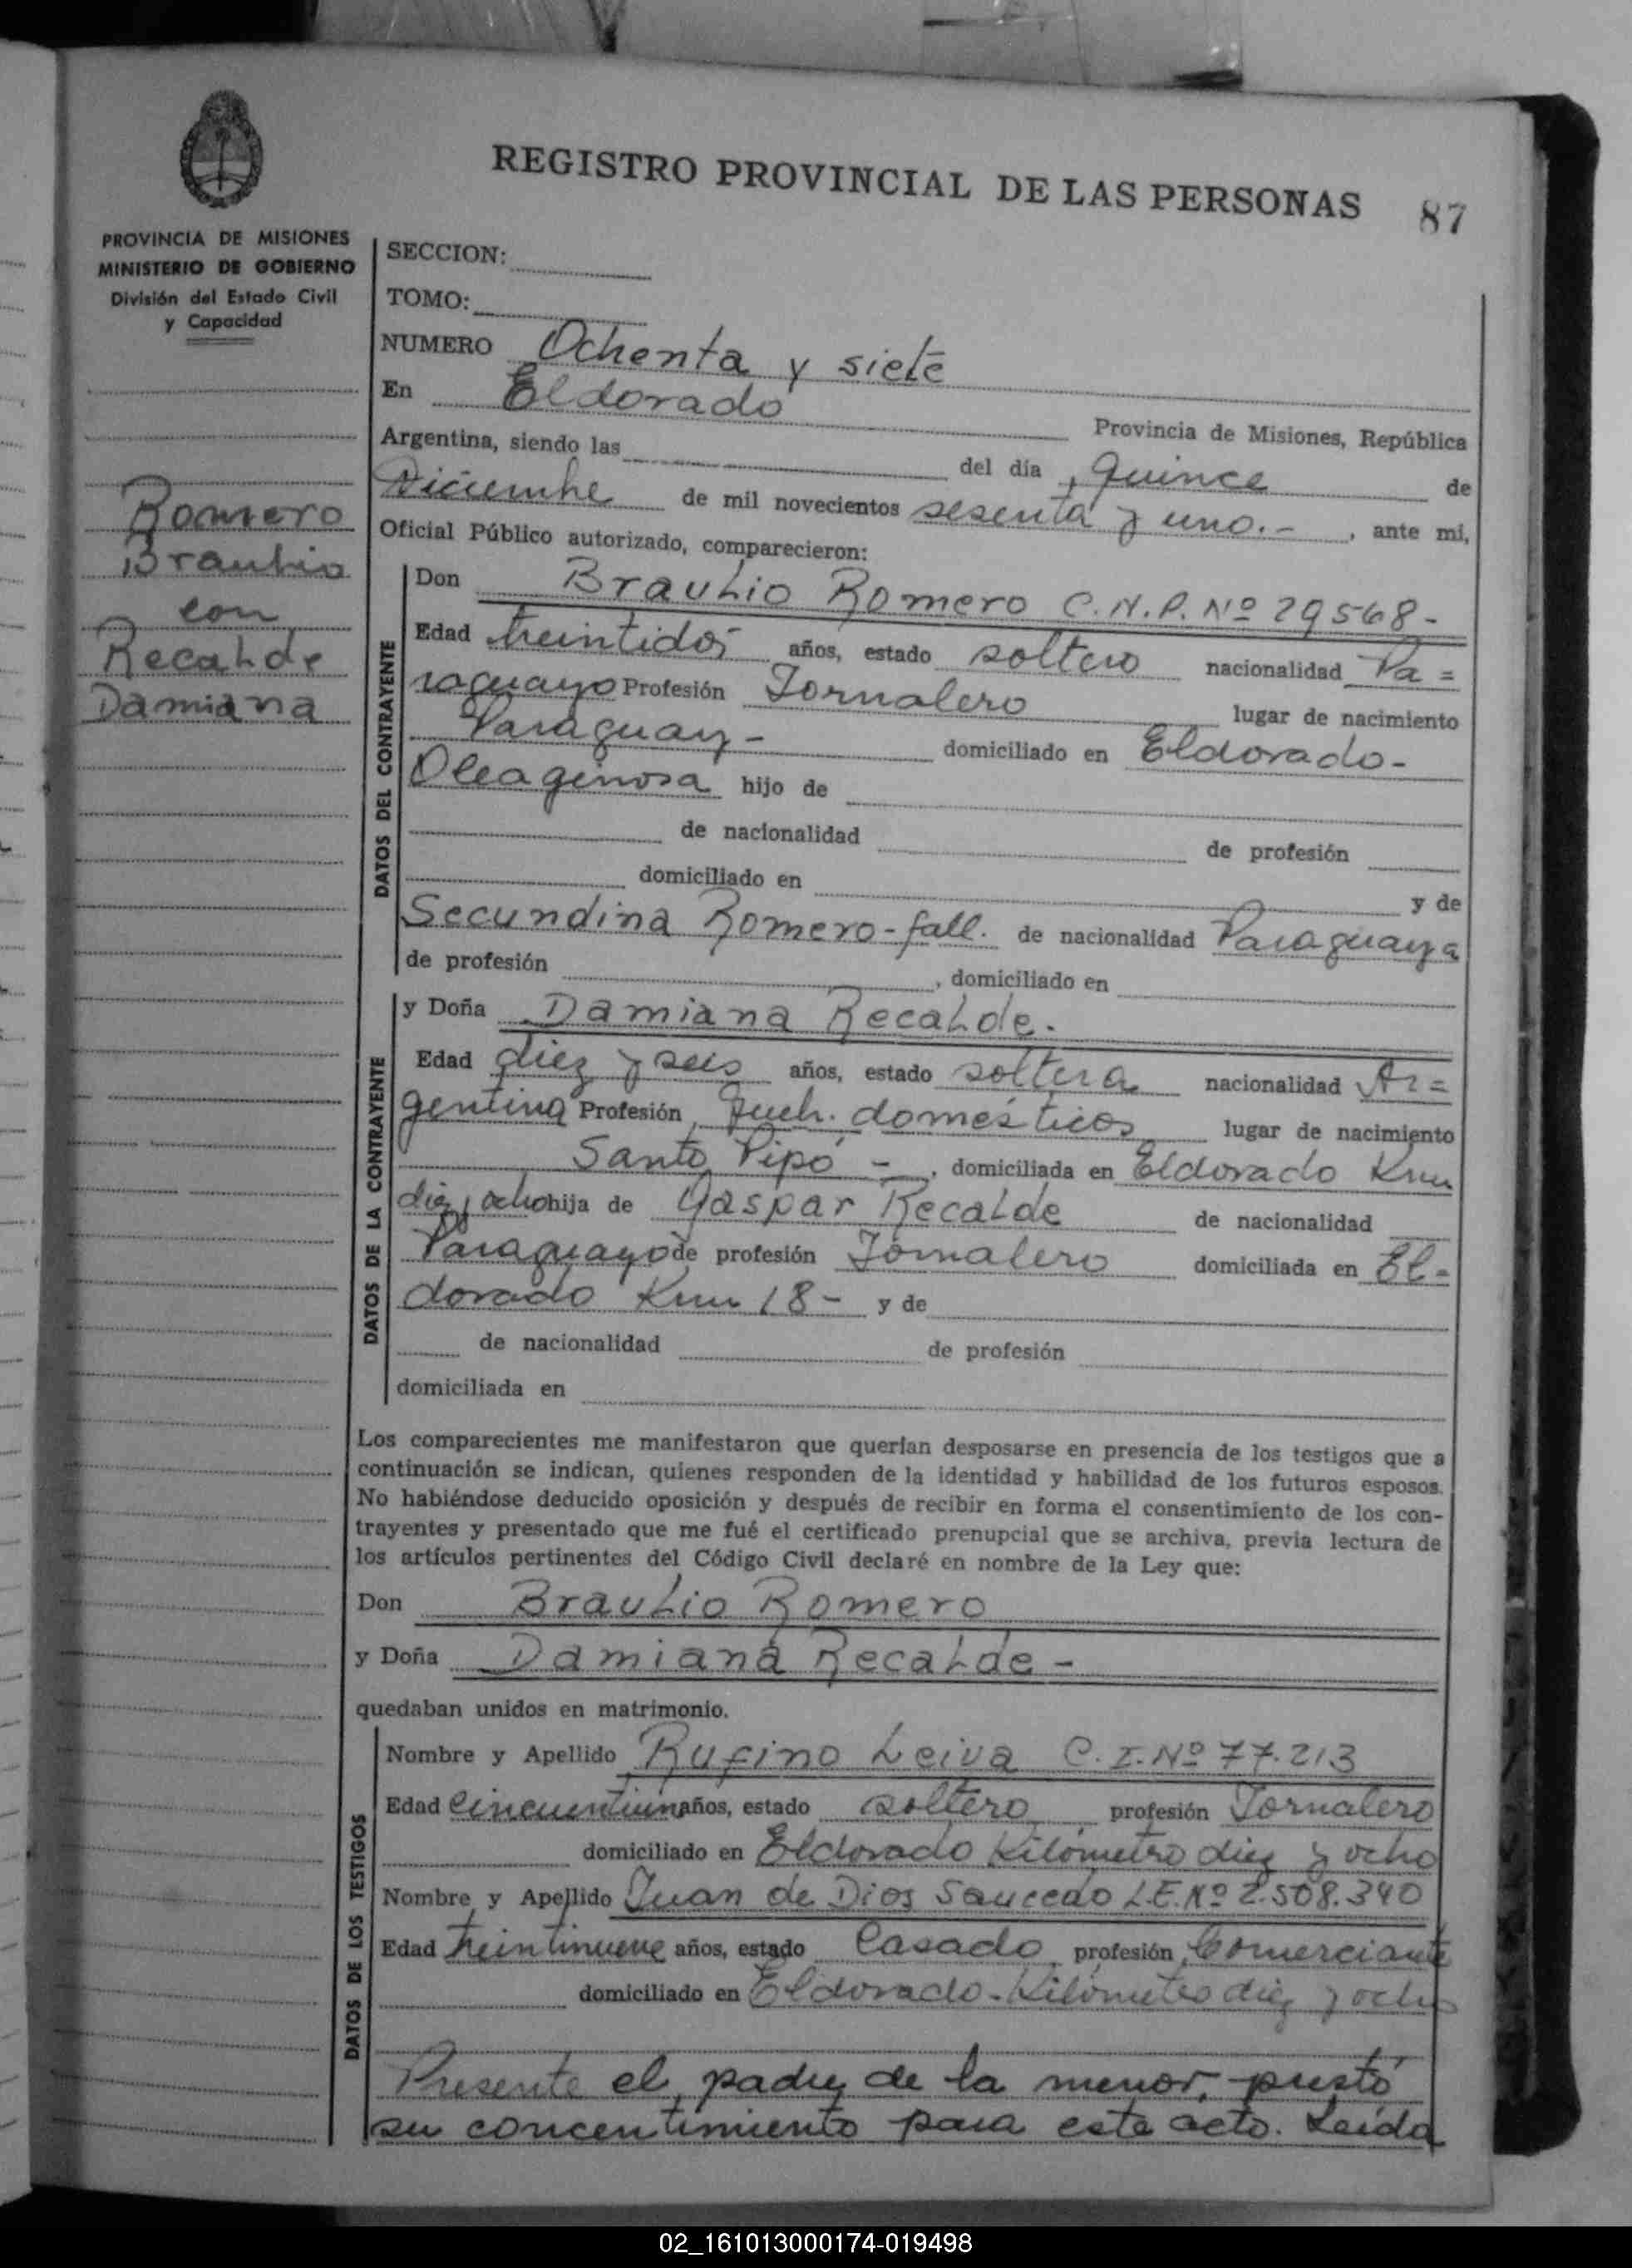 REGISTRO PROVINCIAL DE LAS PERSONAS 87
PROVINCIA DE MISIONES
MINISTERIO DE GOBIERNO
División del Estado Civil
y Capacidad
Romero
Braulio
con
Recalde
Damiana
SECCION:
TOMO:
NUMERO Ochenta y siete
En Eldorado Provincia de Misiones, República
Argentina, siendo las del día quince de
Diciembre de mil novecientos sesenta y uno.- , ante mi,
Oficial Público autorizado, comparecieron:
DATOS DEL CONTRAYENTE
Don Braulio Romero C.N.P. Nº 29568-
Edad treintidos años, estado soltero nacionalidad Pa=
raguayo Profesión Jornalero lugar de nacimiento
Paraguay- domiciliado en Eldorado-
Oleaginosa hijo de
de nacionalidad de profesión
domiciliado en y de
Secundina Romero-fall. de nacionalidad Paraguaya
de profesión , domiciliado en
DATOS DE LA CONTRAYENTE
y Doña Damiana Recalde.
Edad diez y seis años, estado soltera nacionalidad Ar=
gentina Profesión Queh. domésticos lugar de nacimiento
Santo Pipó - , domiciliada en Eldorado Km
diez y ocho hija de Gaspar Recalde de nacionalidad
Paraguayo de profesión Jornalero domiciliada en El-
dorado Km 18- y de
de nacionalidad de profesión
domiciliada en
Los comparecientes me manifestaron que querían desposarse en presencia de los testigos que a
continuación se indican, quienes responden de la identidad y habilidad de los futuros esposos.
No habiéndose deducido oposición y después de recibir en forma el consentimiento de los con-
trayentes y presentado que me fué el certificado prenupcial que se archiva, previa lectura de
los artículos pertinentes del Código Civil declaré en nombre de la Ley que:
Don Braulio Romero
y Doña Damiana Recalde-
quedaban unidos en matrimonio.
DATOS DE LOS TESTIGOS
Nombre y Apellido Rufino Leiva C.I. Nº 77.213
Edad cincuentiun años, estado soltero profesión Jornalero
domiciliado en Eldorado Kilómetro diez y ocho
Nombre y Apellido Juan de Dios Saucedo L.E. Nº 2.508.340
Edad treintinueve años, estado Casado profesión Comerciante
domiciliado en Eldorado-Kilómetro diez y ocho
Presente el padre de la menor, prestó
su concentimiento para este acto. Leída
02_161013000174-019498